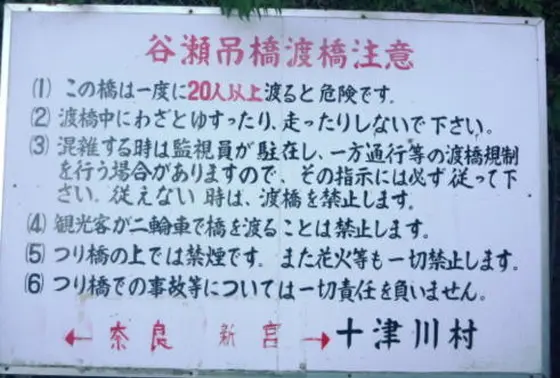 谷瀬吊橋渡橋注意
(1) この橋は一度に20人以上渡ると危険です.
(2) 渡橋中にわざとゆすったり、走ったりしないで下さい。
(3) 混雑する時は監視員が駐在し、一方通行等の渡橋規制
を行う場合がありますので、その指示には必ず従って下
さい。従えない時は、渡橋を禁止します。
(4) 観光客が二輪車で橋を渡ることは禁止します。
(5) つり橋の上では禁煙です。また花火等も一切禁止します。
(6) つり橋での事故等については一切責任を負いません。
← 奈良 新宮 → 十津川村